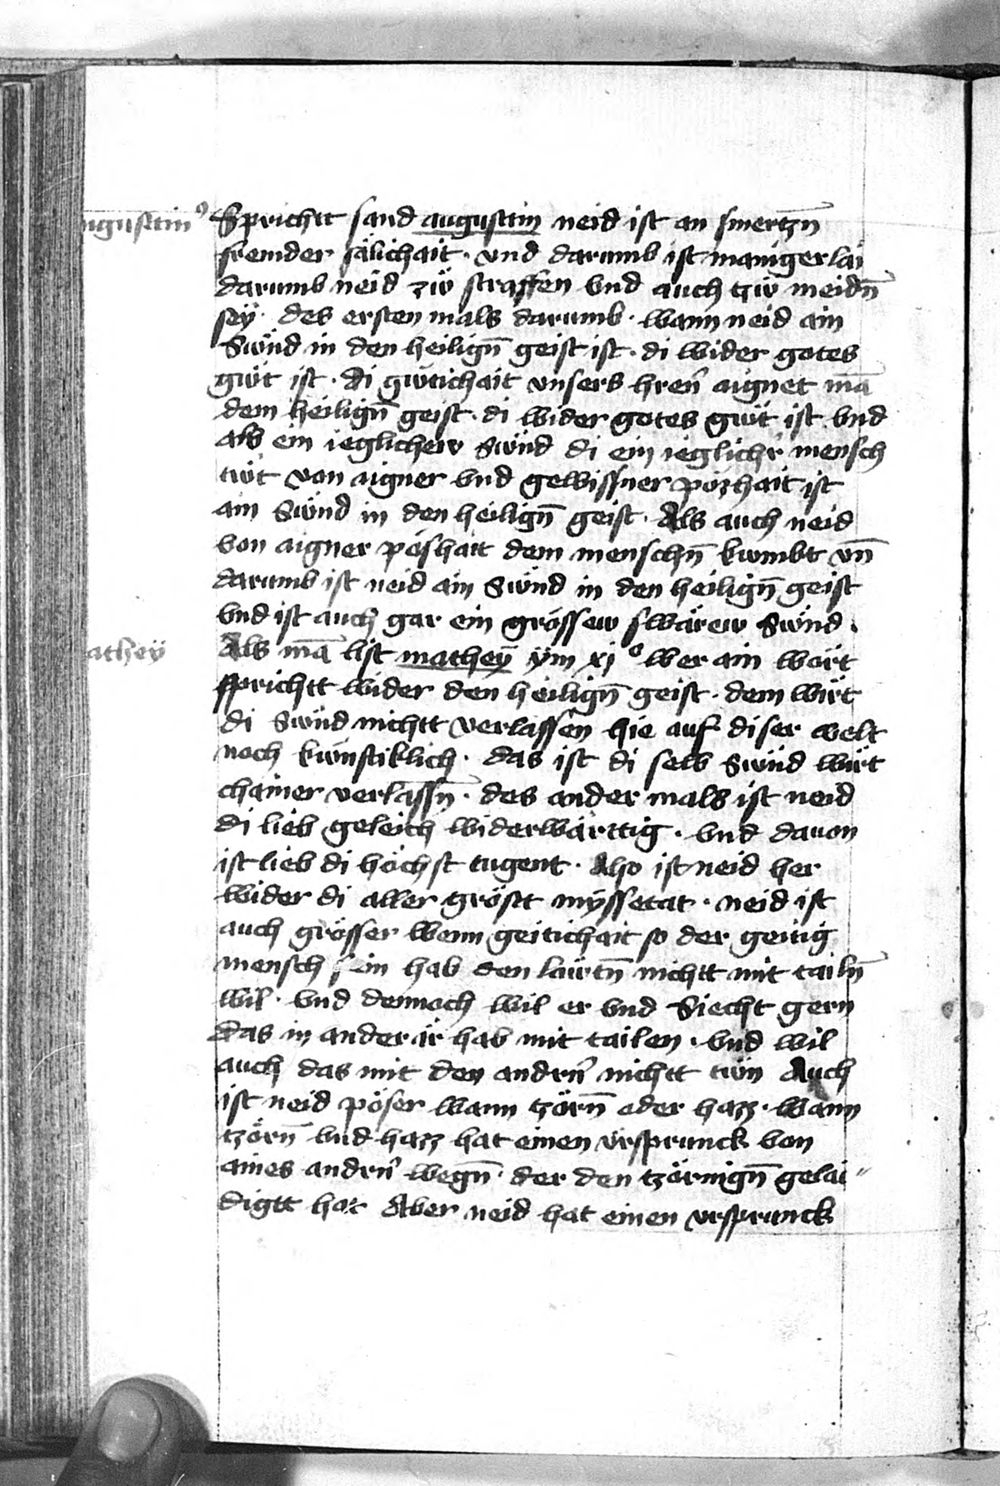 ugusttin⁹
Sprichtt sand augusttin neid ist an smertzn̄
fremder sälichait · vnd darumb ist manigerlai
darumb neid zw̎ straffen vnd auch tzw̎ meidn̄
sey̎ · des ersten mals darumb · wann neid ain
Sw̎nd in den heilign̄ geist ist · di wider gotes
gw̎t ist · di gw̎tichait vnsers hren̄ aignet mā
dem heilign̄ geist · di wider gotes gw̎t ist vnd
als ein ieglichew sw̎nd di ein ieglichr̄ mensch
tw̎t von aigner vnd gewissner pözhait ist
ain Sw̎nd in den heilign̄ geist · Als auch neid
von aigner pöshait dem menschn̄ kwmbt vn̄
darumb ist neid ain Sw̎nd in den heilign̄ geist
vnd ist auch gar ein grössew swärew Sw̎nd ·
athey̎
Als mā list mathey̎ y̎m xjº wer ain wart
sprichtt wider den heilign̄ geist · dem wirt
di Sw̎nd nichtt verlassen hie auf diser welt
noch kw̎nftiklich · das ist di selb Sw̎nd wirt
chainer verlassn̄ · des ander mals ist neid
di lieb geleich widerwärttig · vnd dauon
ist lieb di höchst tugent · Also ist neid her
wider di aller gröstt myssetat · neid ist
auch grösser wenn geitichait so der geitig
mensch sein hab den läwtn̄ nichtt mit tailn̄
wil · vnd dennoch wil er vnd Siecht gern
das in ander ir hab mit tailen · vnd wil
auch das mit den andrn̄ nichtt tw̎n Auch
ist neid pöser wann tzörn̄ oder hazz · wann
tzörn̄ vnd hazz hat einen vrsprunck von
aines andrn̄ wegn̄ · der den tzörnign̄ gelai⸗
digtt hat Aber neid hat einen vrsprunck